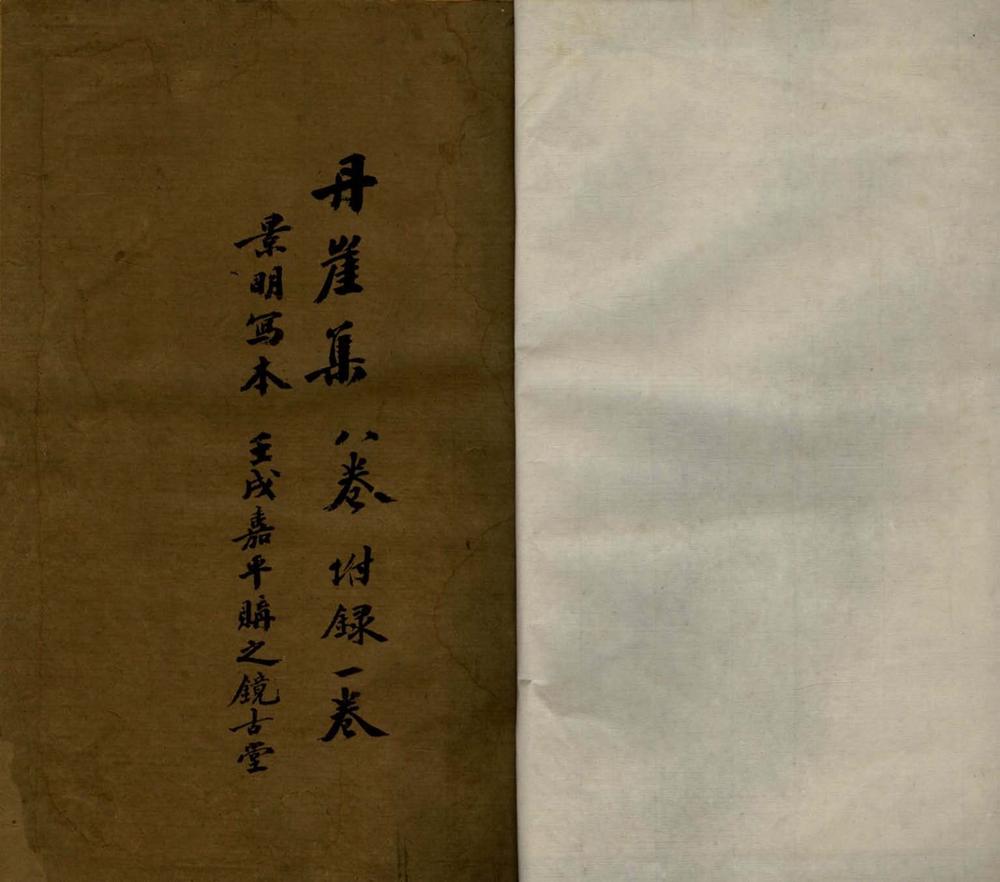 丹崖集八卷坿録一卷
景明写本 壬戌嘉平購之鏡古堂